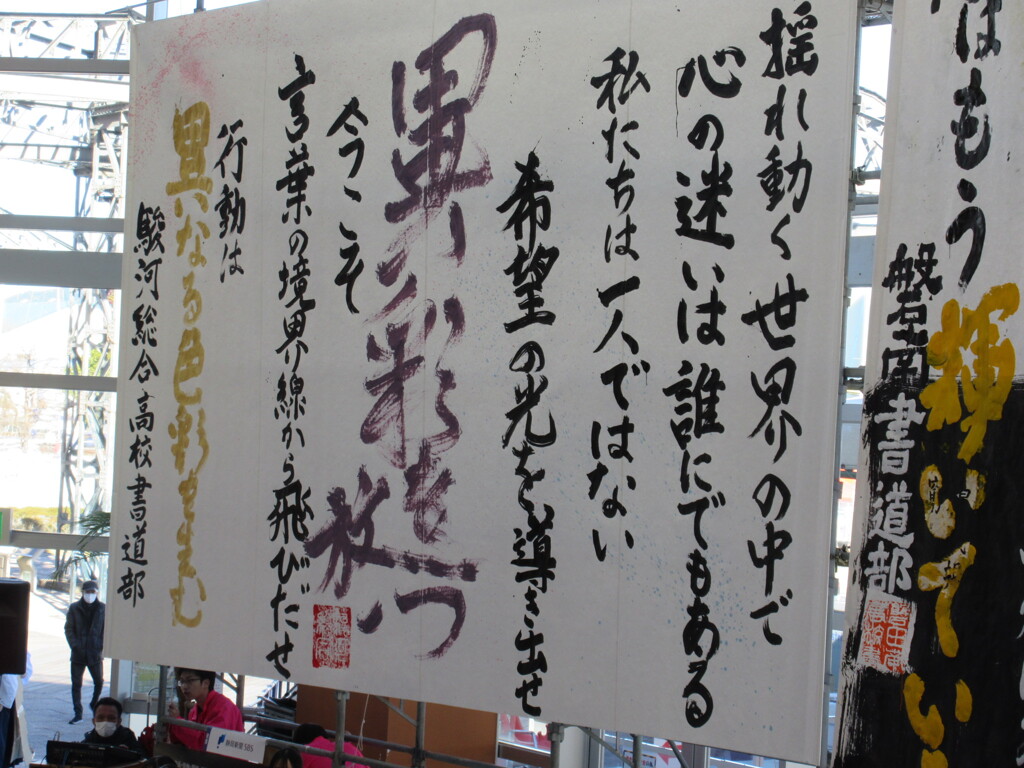 はもう
輝いている
磐田南書道部
揺れ動く世界の中で
心の迷いは誰にでもある
私たちは一人ではない
希望の光を導き出せ
異彩を放つ
今こそ
言葉の境界線から飛びだせ
行動は
異なる色彩を生む
駿河総合高校書道部
静岡新聞SBS